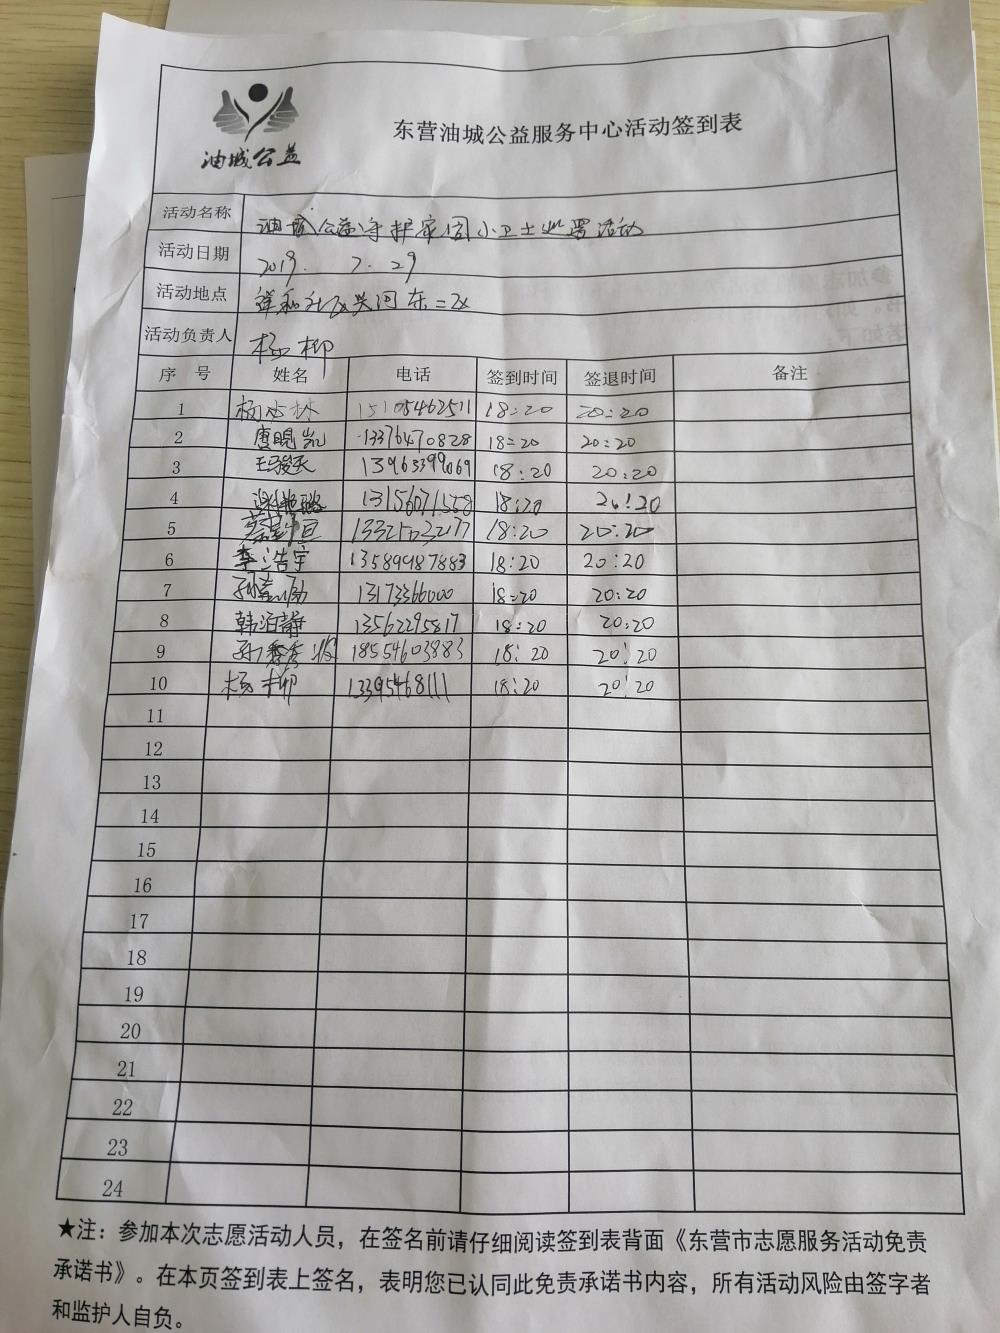 油城公益
东营油城公益服务中心活动签到表
活动名称 油城公益守护家园小卫士巡逻活动
活动日期 2019. 7. 29
活动地点 祥和社区兴河东二区
活动负责人 杨柳
序 号 姓名 电话 签到时间 签退时间 备注
1 15105462511 18:20 20:20
2 唐晛凯 13376470828 18:20 20:20
3 王骏天 13963399069 18:20 20:20
4 13156071558 18:20 20:20
5 18:20 20:20
6 李浩宇 13589987883 18:20 20:20
7 13173366000 18:20 20:20
8 韩泊静 13562295817 18:20 20:20
9 孙 18554603883 18:20 20:20
10 杨柳 13395468111 18:20 20:20
11
12
13
14
15
16
17
18
19
20
21
22
23
24
★注：参加本次志愿活动人员，在签名前请仔细阅读签到表背面《东营市志愿服务活动免责
承诺书》。在本页签到表上签名，表明您已认同此免责承诺书内容，所有活动风险由签字者
和监护人自负。